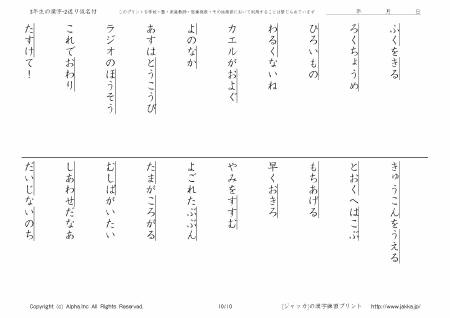 3年生の漢字-2送り仮名付
このプリントを学校・塾・家庭教師・医療機関・その他施設において利用することは禁じられています
年 月 日
ふくをきる
ろくちょうめ
ひろいもの
わるくないね
カエルがおよぐ
よのなか
あすはとうこうび
ラジオのほうそう
これでおわり
たすけて！
きゅうこんをうえる
とおくへはこぶ
もちあげる
早くおきろ
やみをすすむ
よごれたぶぶん
たまがころがる
むしばがいたい
しあわせだなあ
だいじないのち
Copyright (c) Alpha.Inc All Rights Reserved.
10/10
[ジャッカ]の漢字練習プリント http://www.jakka.jp/